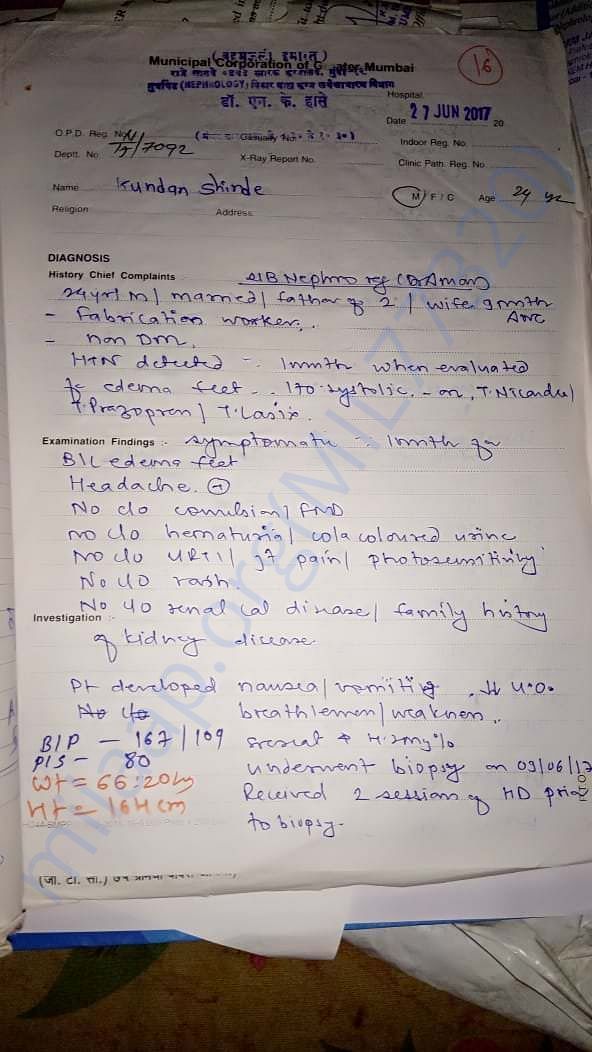 (16)
Municipal Corporation of Greater Mumbai
(NEPHROLOGY)
डॉ. एन. के. हासे
Hospital
Date 27 JUN 2017 20
O.P.D. Reg. No.
Casualty No.
Indoor Reg. No.
Deptt. No. 7092
X-Ray Report No.
Clinic Path. Reg. No.
Name Kundan Shinde M / F / C Age 24 yr
Religion Address
DIAGNOSIS
History Chief Complaints :- S/B Nephro reg (Dr Aman)
24yrs M / married / father of 2 / wife 9 mnth ANC
- Fabrication worker.
- non DM.
HTN detected - 1 mnth when evaluated
for edema feet . 170 systolic. - on, T. Nicardia /
T. Prazopren / T. Lasix.
Examination Findings :- Symptomatic - 1mnth for
B/L edema feet
Headache. (+)
No c/o convulsion / FND
No c/o hematuria / cola coloured urine
No c/o URTI / jt pain / photosensitivity
No c/o rash.
No c/o renal cal disease / family history
Investigation :-
of kidney disease.
Pt developed nausea / vomiting . ↓↓ U.O.
No c/o breathlessness / weakness..
B/P - 167/109
Pls - 80
underwent biopsy on 09/06/17
Wt = 66.20 kg
Received 2 session of HD prior
Ht = 164 cm
to biopsy.
milaap.org(MIL77820)